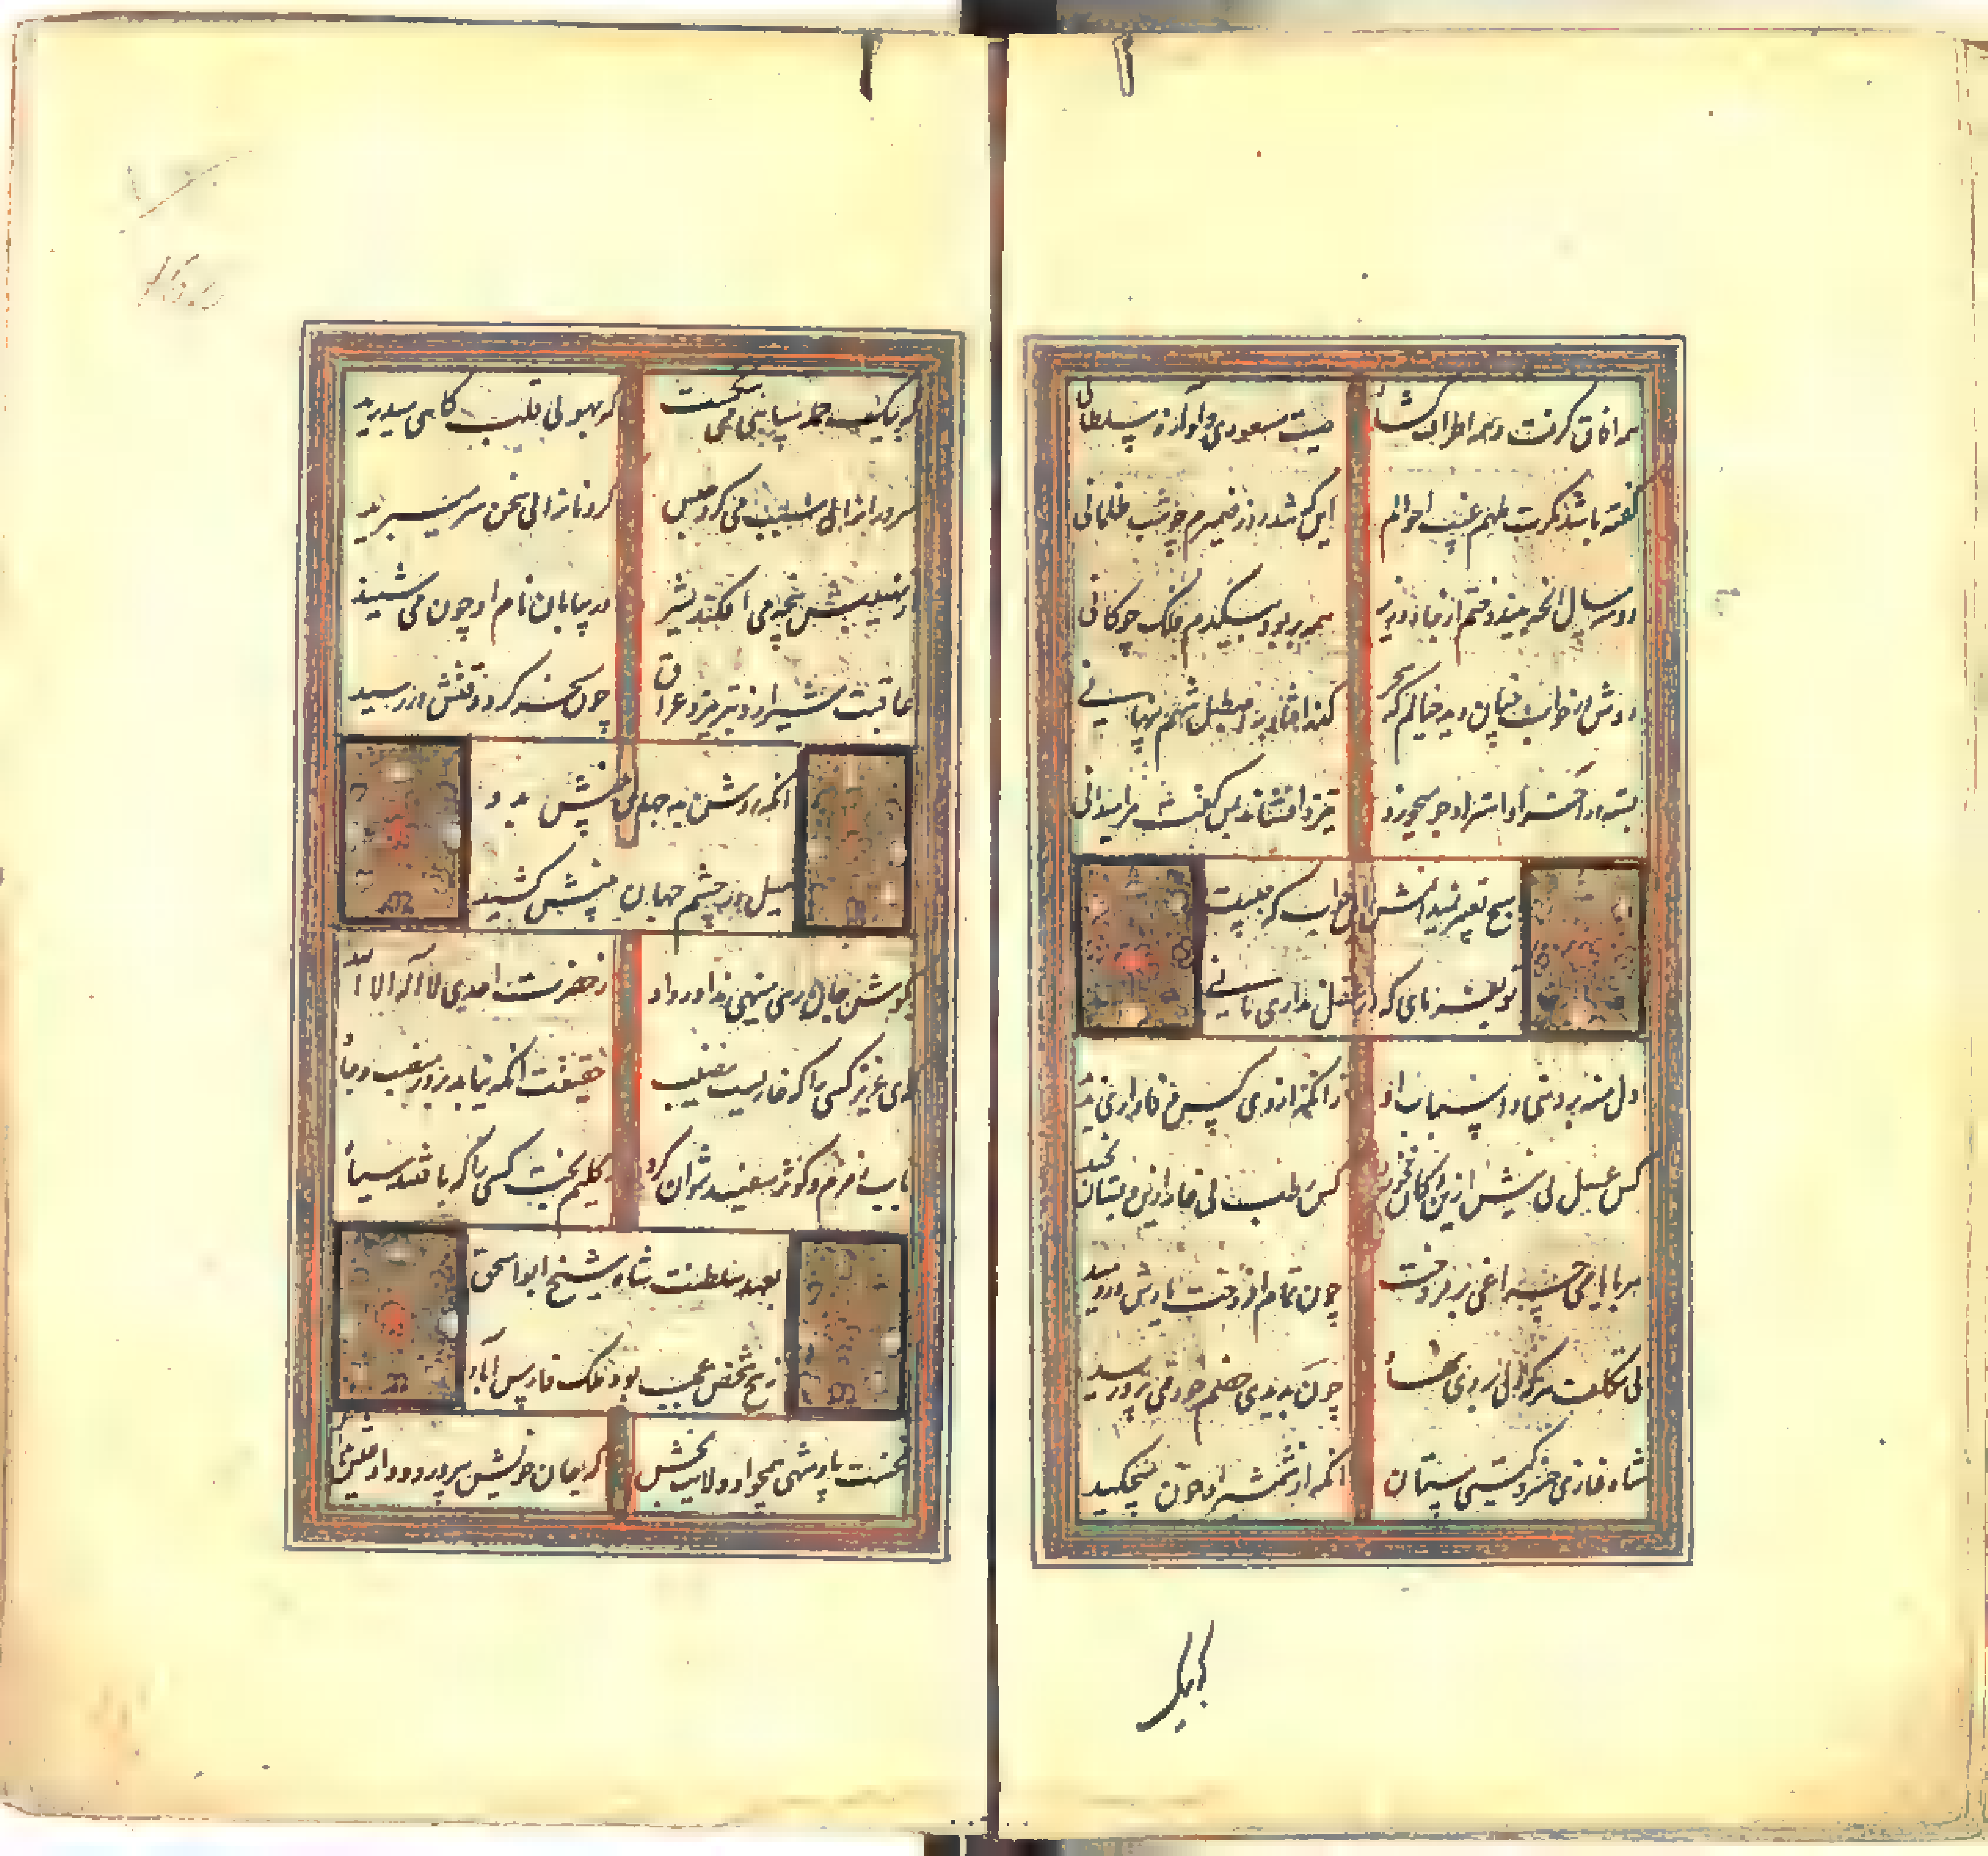 همه آفاق گرفت و همه اطراف گشاد صیت مسعودی و آوازه سلطانی
گفته باشد مگرت ملهم غیب احوالم این که شد روز ضمیرم چو شب ظلمانی
در سه سال آنچه بیندوختم از شاه و وزیر همه بربود بیکدم فلک چوکانی
دوش در خواب چنان دید خیالم که سحر گذر افتاد بر اصطبل شهم پنهانی
بسته بر آخور او استر او جو میخورد تیز افشاند بمن گفت مرا میدانی
هیچ تعبیر نمیدانمش این خواب که چیست
تو بفرمای که در عقل نداری ثانی
دل منه بر دنیی و اسباب او زانکه از وی کس وفاداری ندید
کس عسل بی نیش ازین دکان نخورد کس رطب بی خار ازین بستان نچید
هر بایامی چراغی بر فروخت چون تمام افروخت بادش در دمید
بی تکلف هر که دل بر وی نهاد چون بدیدی خصم خود می پرورید
شاه غازی خسرو گیتی ستان آنکه از شمشیر او خون میچکید
که بیک
که بیک حمله سپاهی می شکست که بهوئی قلب کاهی میدرید
سروران را بی سبب می کرد حبس گردنان را بی سخن سر میبرید
از نهیبش پنجه می افکند شیر در بیابان نام او چون می شنید
عاقبت شیراز و تبریز و عراق چون مسخر کرد وقتش در رسید
آنکه روشن بد جهان بینش بدو
میل در چشم جهان بینش کشید
بگوش جان رهی منهی ندا در داد ز حضرت احدی لا اله الا الله
که ای عزیز کسی را که خواریست نصیب حقیقت آنکه نیابد بزور منصب و جاه
بآب زمزم و کوثر سفید نتوان کرد گلیم بخت کسی را که بافتند سیاه
بعهد سلطنت شاه شیخ ابواسحق
بپنج شخص عجب بود ملک فارس آباد
نخست پادشهی همچو او ولایت بخش که جان خویش بپرورد و داد عیش بداد